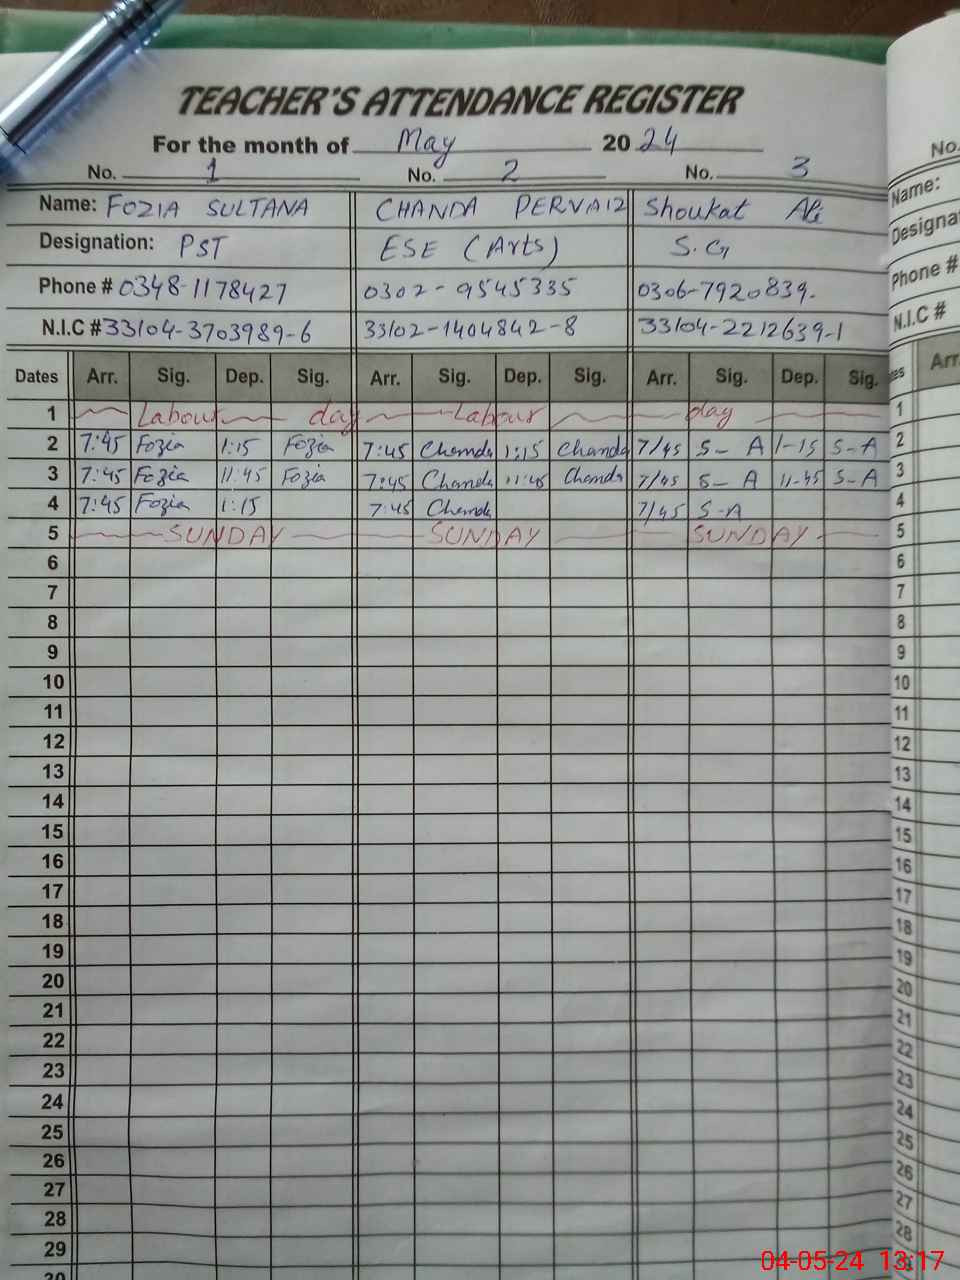 TEACHER'S ATTENDANCE REGISTER
For the month of May 2024
No. 1 No. 2 No. 3
Name: FOZIA SULTANA CHANDA PERVAIZ Shoukat Ali
Designation: PST ESE (Arts) S.G
Phone # 0348-1178427 0302-9545335 0306-7920839-
N.I.C # 33104-3703989-6 33102-1404842-8 33104-2212639-1
Dates Arr. Sig. Dep. Sig. Arr. Sig. Dep. Sig. Arr. Sig. Dep. Sig.
1 Labour day Labour day
2 7:45 Fozia 1:15 Fozia 7:45 Chanda 1:15 Chanda 7/45 S-A 1-15 S-A
3 7:45 Fozia 11:45 Fozia 7:45 Chanda 11:45 Chanda 7/45 S-A 11-45 S-A
4 7:45 Fozia 1:15 7:45 Chanda 7/45 S-A
5 SUNDAY SUNDAY SUNDAY
6
7
8
9
10
11
12
13
14
15
16
17
18
19
20
21
22
23
24
25
26
27
28
29
30
No.
Name:
Designa
Phone #
N.I.C #
es Arr
1
2
3
4
5
6
7
8
9
10
11
12
13
14
15
16
17
18
19
20
21
22
23
24
25
26
27
28
04-05-24 13:17